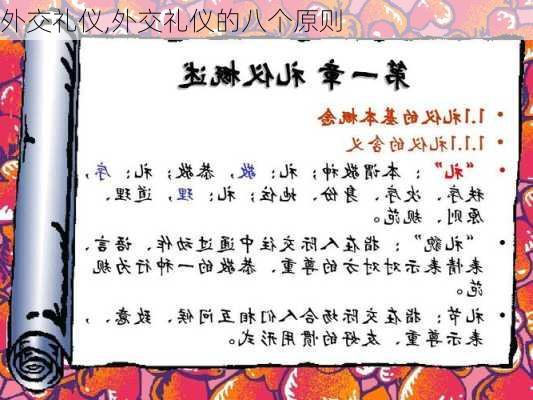 外交礼仪,外交礼仪的八个原则
第一章 礼仪概述
• 1.1礼仪的基本概念
• 1.1.1礼仪的含义
• “礼”：本谓敬神；礼：敬，恭敬；礼：序，
秩序、次序、身份、地位；礼：理，道理、
原则、规范。
• “礼貌”：指在人际交往中通过动作、语言、
表情表示对对方的尊重、恭敬的一种行为规
范。
• 礼节：指在交际场合人们相互问候、致意、，
表示尊重、友好的惯用形式。